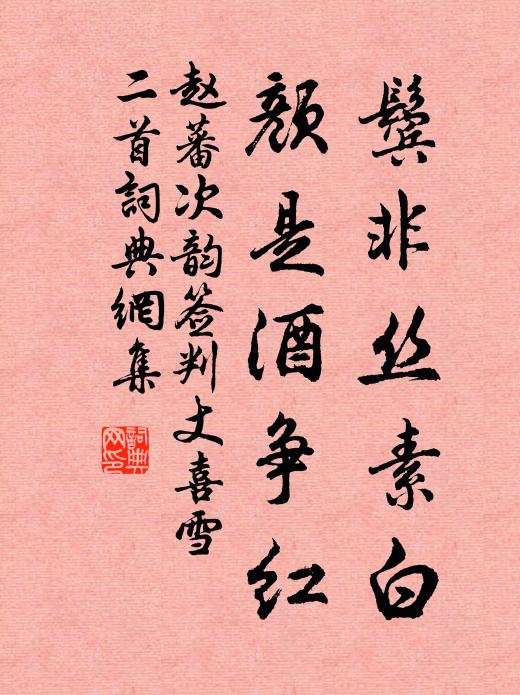 鬓非丝素白
颜是酒争红
赵蕃次韵签判丈喜雪
二首詞典網集
詞典
网印